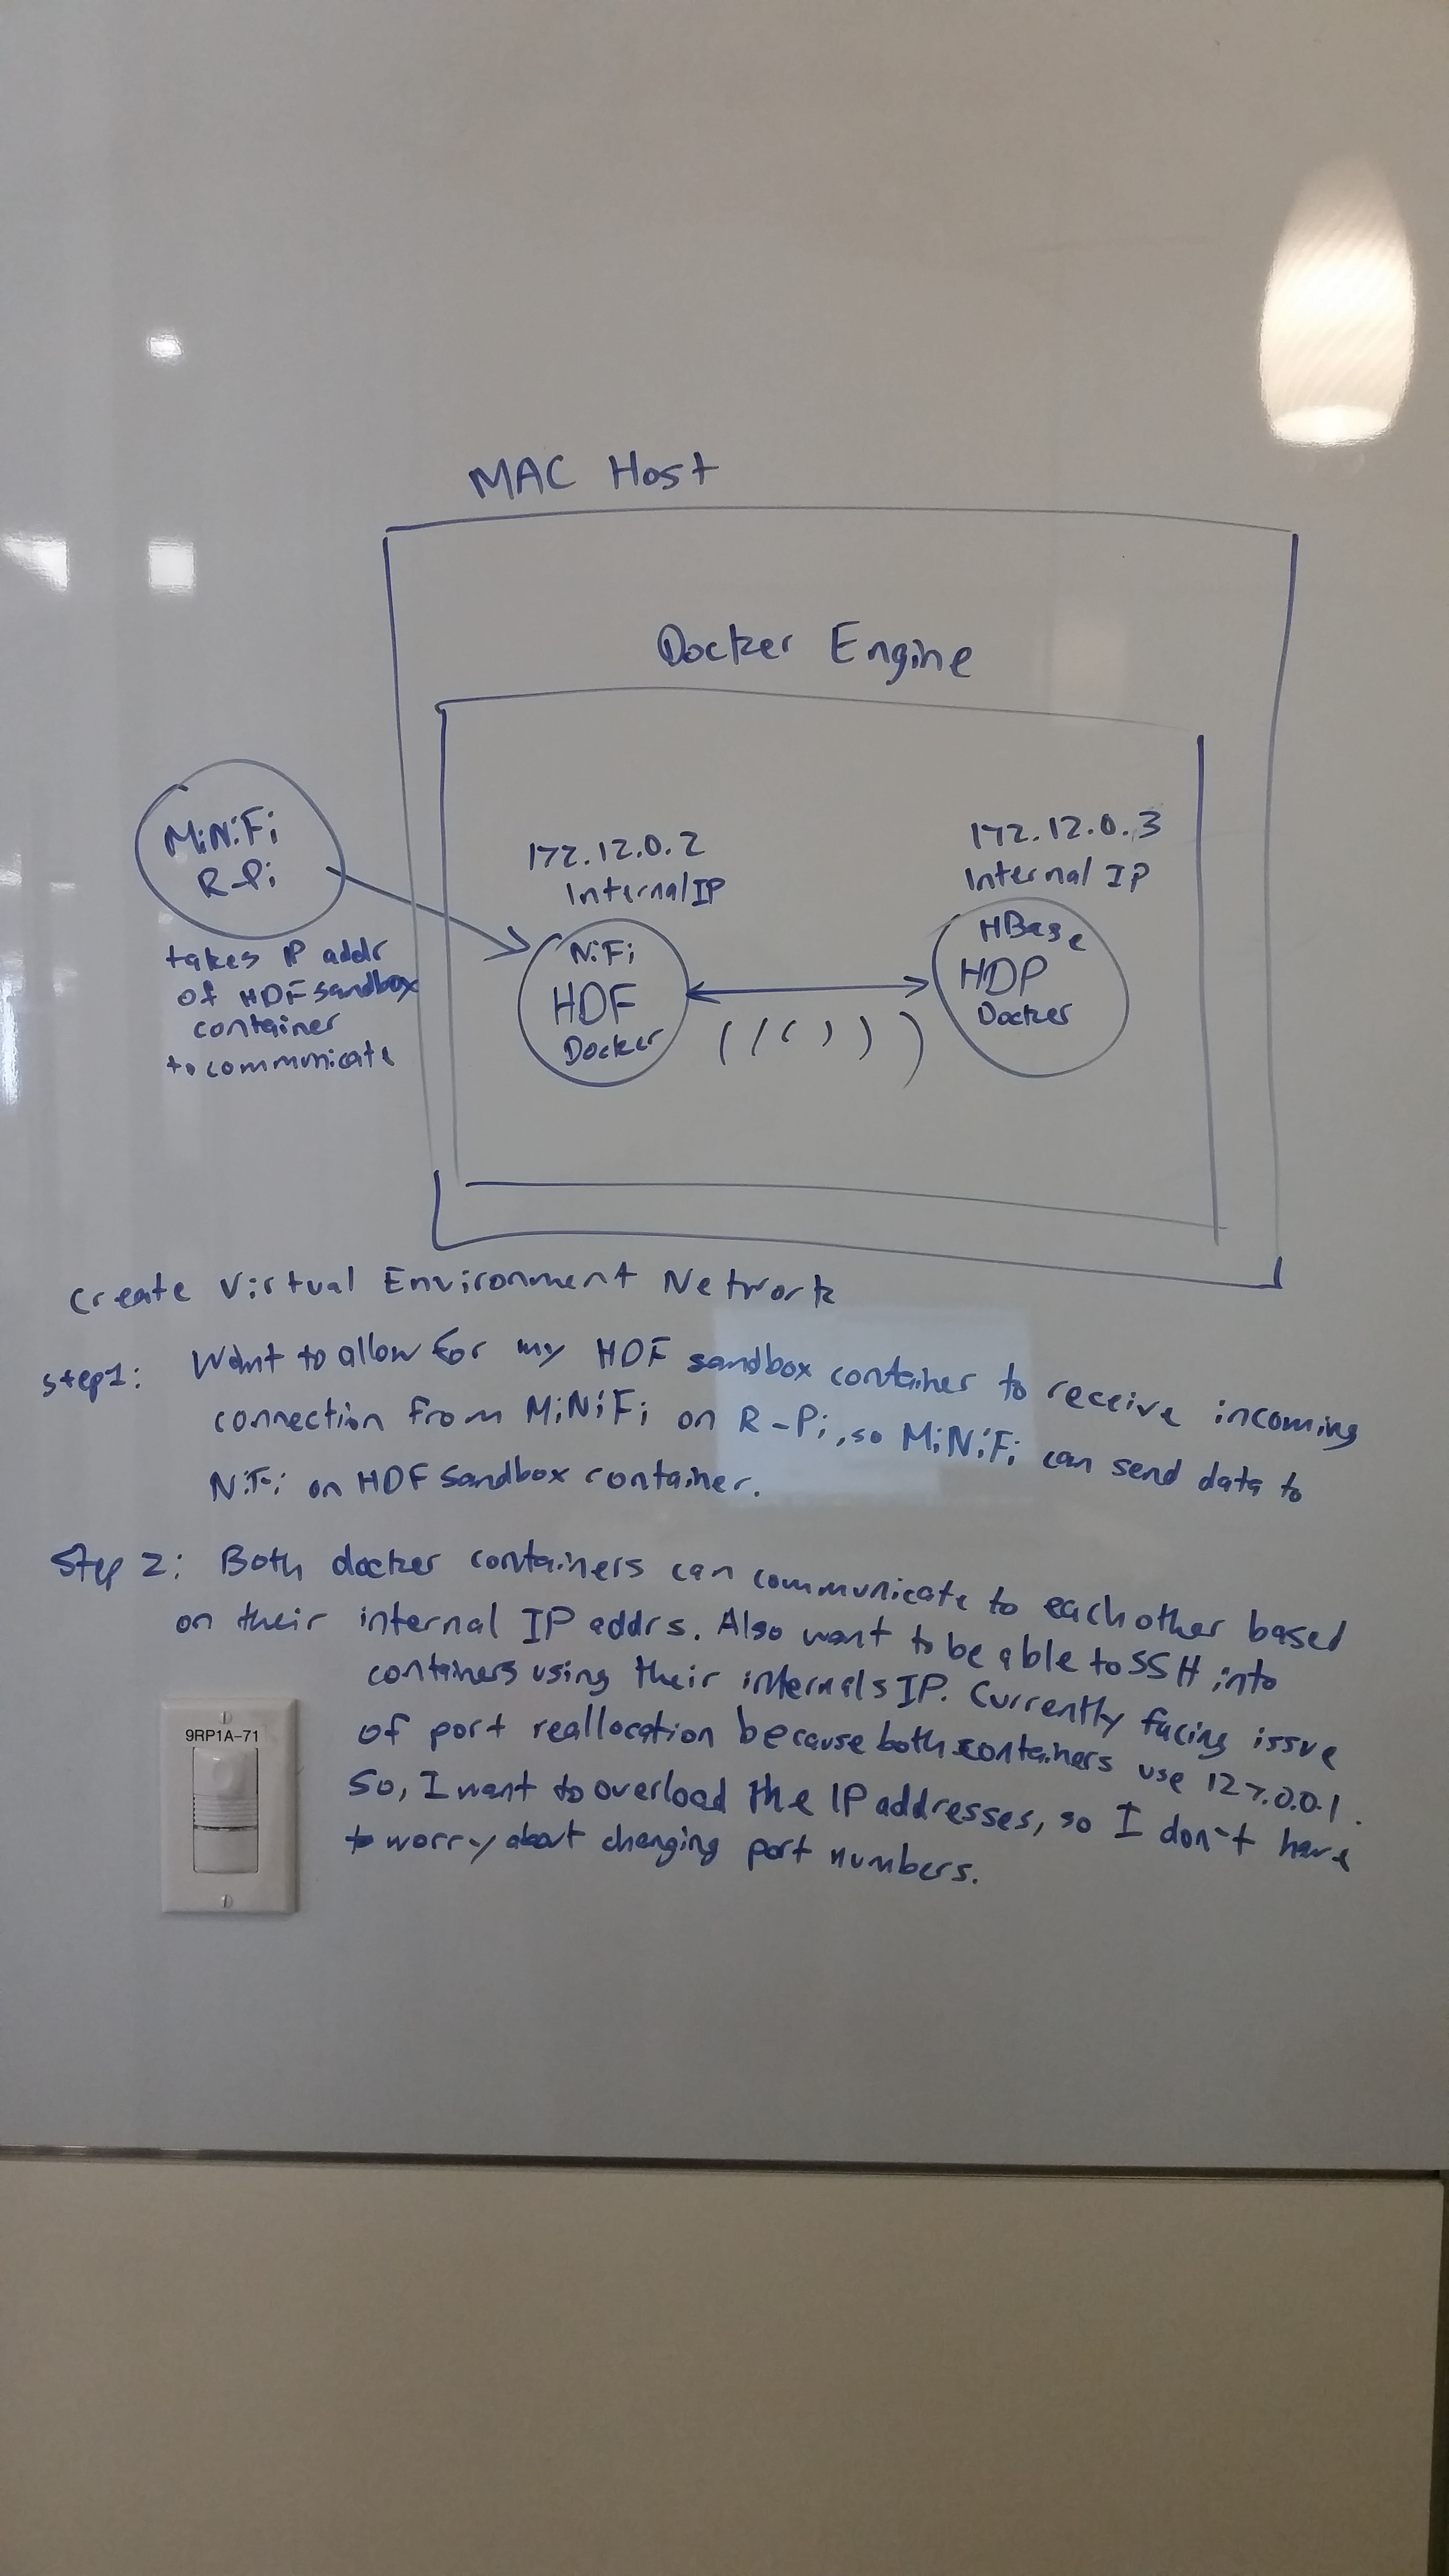 MAC Host
Docker Engine
MiNiFi
R-Pi
takes IP addr
of HDF sandbox
container
to communicate
172.12.0.2
Internal IP
NiFi
HDF
Docker
172.12.0.3
Internal IP
HBase
HDP
Docker
Create Virtual Environment Network
step1: Want to allow for my HDF sandbox container to receive incoming
connection from MiNiFi on R-Pi, so MiNiFi can send data to
NiFi on HDF sandbox container.
Step 2: Both docker containers can communicate to each other based
on their internal IP addrs. Also want to be able to SSH into
containers using their internals IP. Currently facing issue
of port reallocation because both containers use 127.0.0.1.
So, I want to overload the IP addresses, so I don't have
to worry about changing port numbers.
9RP1A-71